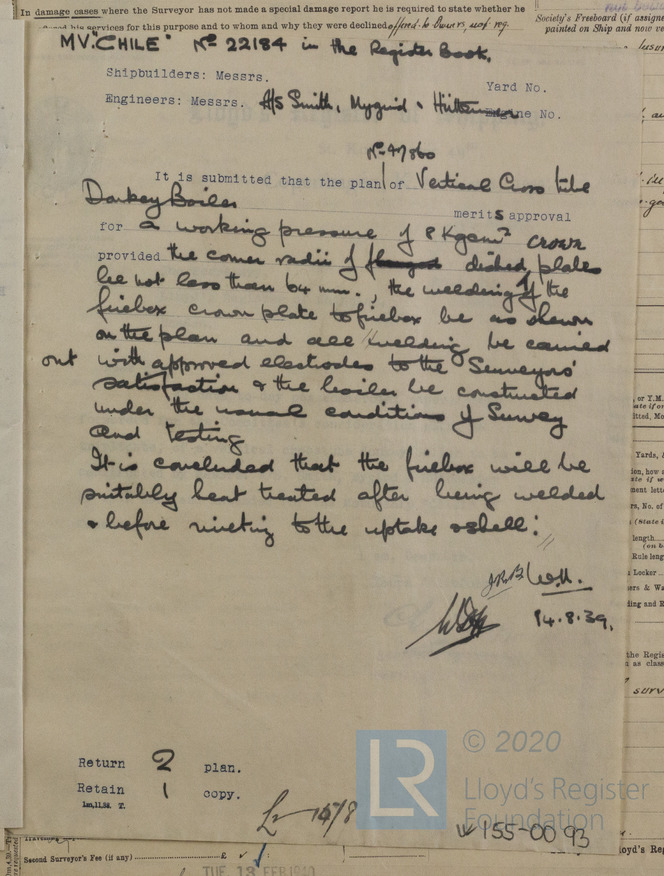 In damage cases where the Surveyor has not made a special damage report he is required to state whether he
his services for this purpose and to whom and why they were declined offered to Owners, not req.
Society's Freeboard (if assigne
painted on Ship and now ve
MV. "CHILE" No 22184 in the Register Book.
Shipbuilders: Messrs. Yard No.
Engineers: Messrs. A/S Smith, Mygind & Engine No.
No 47860
It is submitted that the plan of Vertical Cross tube
Donkey Boiler
merits approval
for a working pressure of 8 Kg cm² crown
provided the corner radii of flanged dished plates
be not less than 64 mm., the welding of the
firebox crown plate to firebox be as shewn
on the plan and all welding be carried
out with approved electrodes to the Surveyors'
satisfaction & the boiler be constructed
under the usual conditions of Survey
and testing
It is concluded that the firebox will be
suitably heat treated after being welded
& before riveting to the uptake & shell.
W.H.
14.8.39.
Return 2 plan.
Retain 1 copy.
1m,11,38. T.
© 2020
LR
Lloyd's Register
Foundation
W155-0093
Second Surveyor's Fee (if any) £
TUE 13 FEB 1940